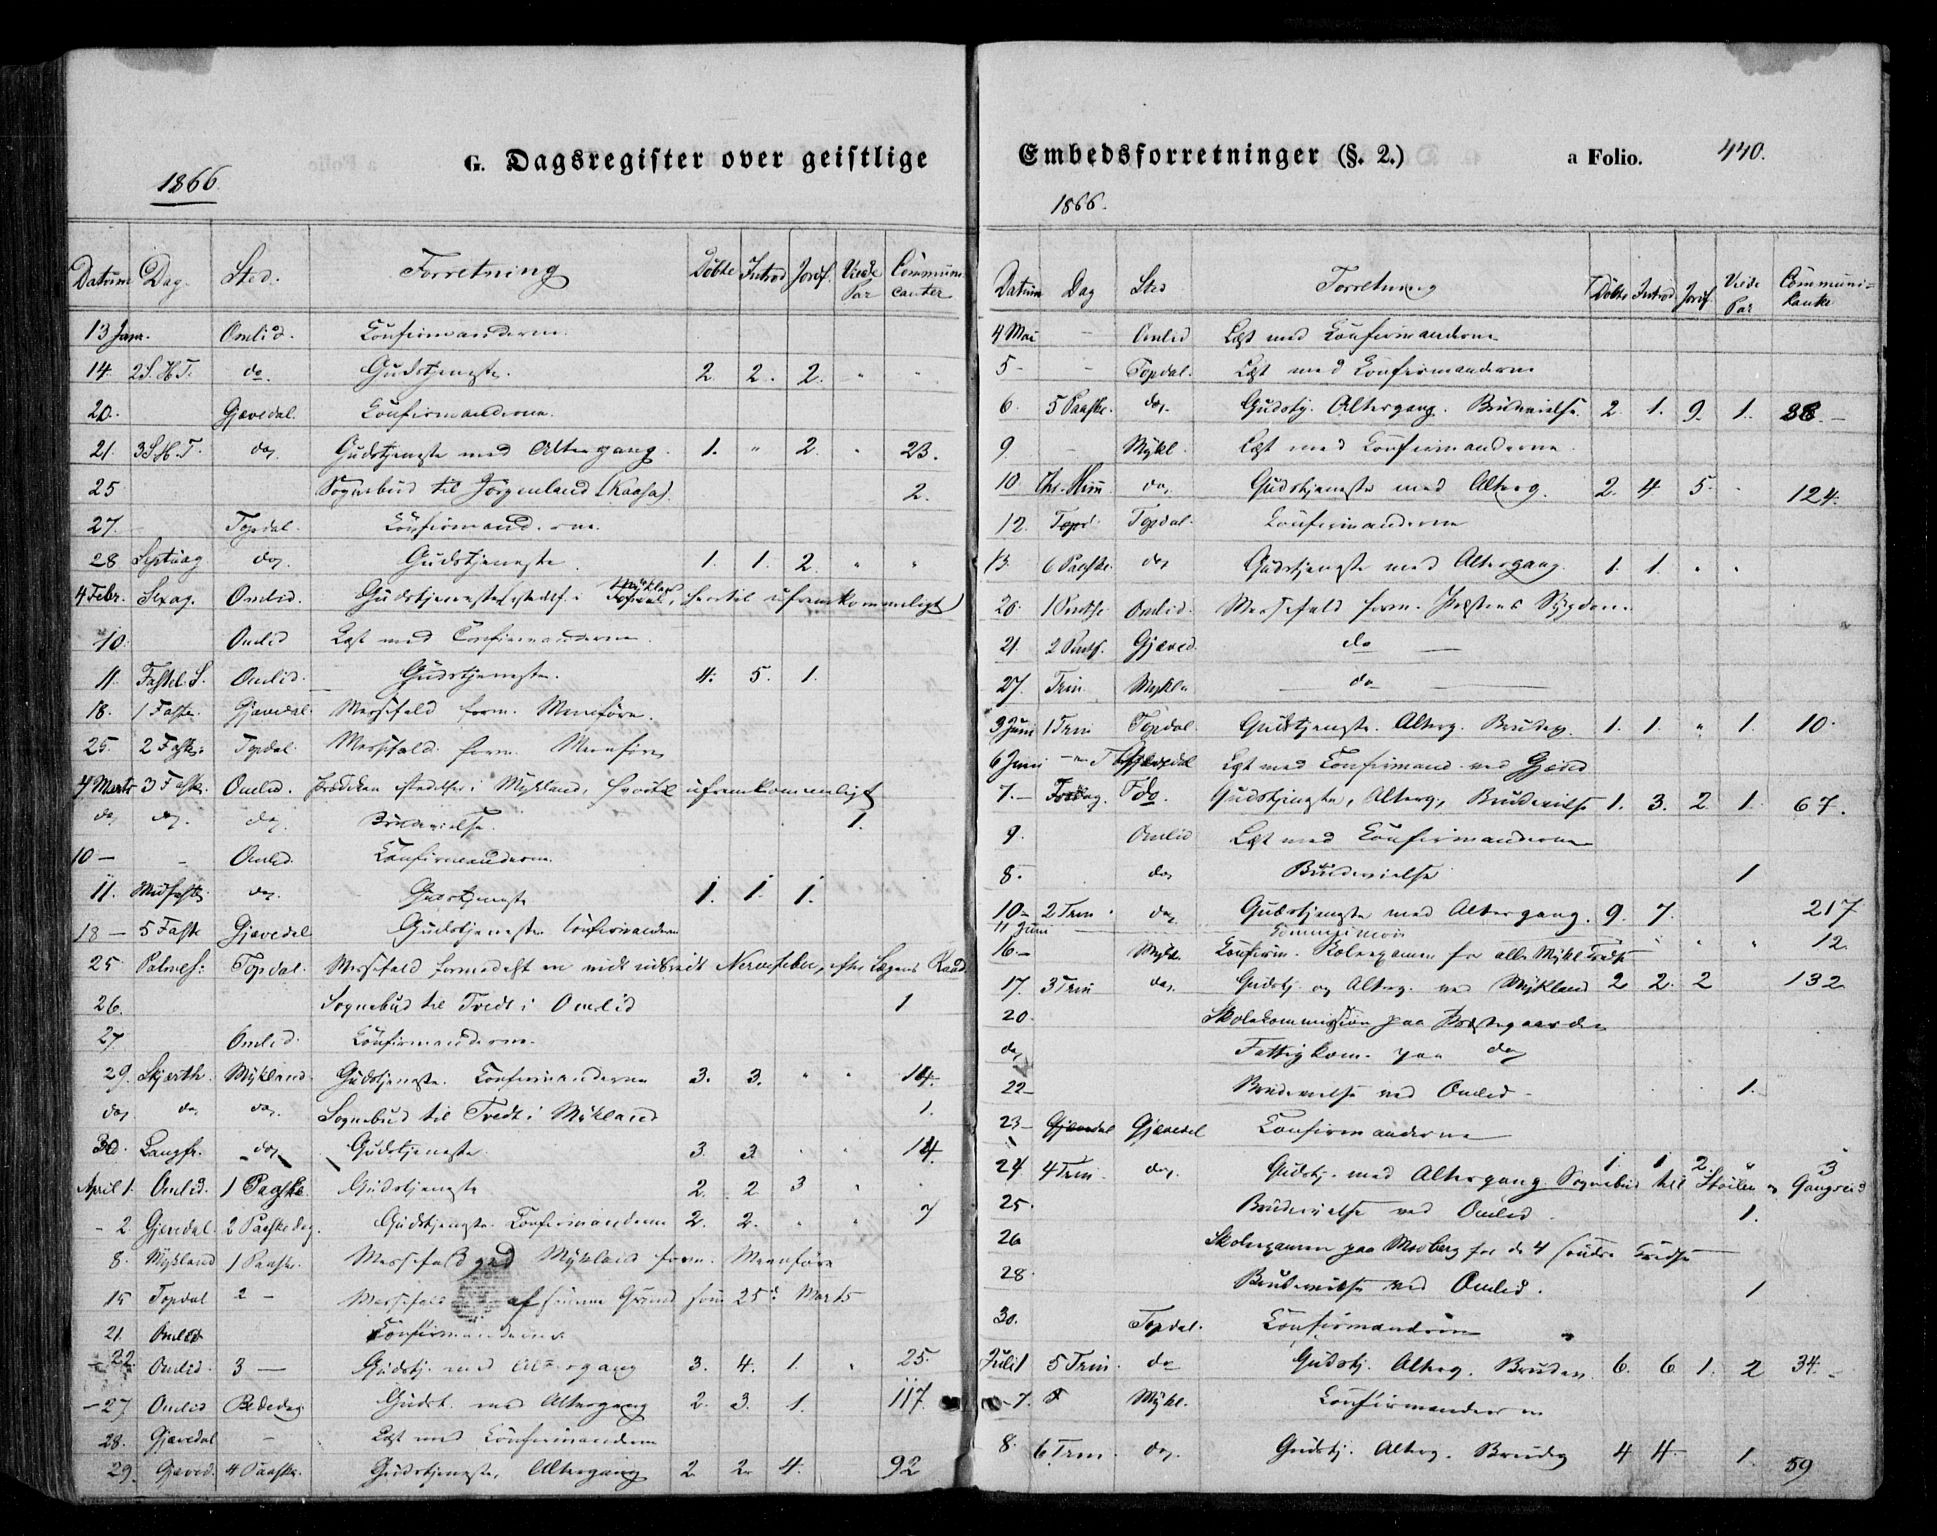 G. Dagsregister over geistlige
1866.
Datum Dag. Sted. Forretning Döbte Introd Jordf. Viede Par Communicanter
13 Janr. Omlid. Confirmanderne.
14. 2 S. H. T. do Gudstjeneste. 2. 2. 2. " "
20. Gjævedal. Confirmanderne.
21. 3 S H. T. do. Gudstjeneste med Altergang. 1. " 2. " 23.
25 Sognebud til Jörgenland (Kaasa). 2.
27. Topdal. Confirmanderne.
28 Septuag do. Gudstjeneste. 1. 1. 2. " "
4 Febr. Sexag. Omlid. Gudstjeneste istedetf. i Mykland, hvortil ufremkommeligt
10. Omlid Læst med Confirmanderne.
11. Fastel. S. Omlid. Gudstjeneste. 4. 5. 1.
18. 1 Faste. Gjævedal. Messefald form. Menföre.
25. 2 Faste. Topdal. Messefald form. Menföre
4 Marts 3 Faste. Omlid. Prædiken istedetfor i Mykland, hvortil ufremkommeligt
do do. do. Brudevielse. 1.
10 — - Omlid. Confirmanderne.
11. Midfaste do. Gudstjeneste 1. 1. 1.
18 — 5 Faste Gjævedal Gudstjeneste Confirmanderne
25 Palmes: Topdal. Messefald formedelst en vidt udbredt Nervefeber, efter Lægens Raad.
26. Sognebud til Tvedt i Omlid 1
27. Omlid. Confirmanderne.
29. Skjærth. Mykland. Gudstjeneste. Confirmanderne 3. 3. " " 14.
do. do do. Sognebud til Tvedt i Mykland 1.
30. Langfr. do. Gudstjeneste. 3. 3. " " 14.
April 1. Omlid. 1 Paaske. Gudstjeneste 2. 2 3 " "
- 2 Gjævedal. 2 Paaskedag. Gudstjeneste. Confirmanderne 2. 2. " " 7
8. Mykland 1 Paaske. Messefald ved Mykland form. Menföre
15 Topdal 2 — Messefald af samme Grund som 25de Marts
21. Omlid Confirmanderne.
- 22. Omlid. 3 — Gudstj. med Altergang 3. 4. 1. " 25.
- 27 Omlid Bededag Gudst. med Altergang 2. 3. 1. 117.
28. Gjævedal - Læst med Confirmanderne
29. Gjæved. 4 Paaske. Gudstjeneste, Altergang 2. 2. 4. 92
Embedsforretninger (§. 2.) a Folio. 440.
1866.
Datum Dag Sted Forretning Döbte Introd Jordf. Viede Par Communikante
4 Mai - Omlid Læst med Confirmanderne
5 - - Topdal. Læst med Confirmanderne
6. 5 Paaske. do. Gudstj. Altergang. Brudevielse. 2. 1. 9. 1. 38. -
9. - Mykl. Læst med Confirmanderne.
10. Chr. Him do. Gudstjeneste med Alterg. 2. 4 5. - 124.
12. Topdal. Confirmanderne
13. 6 Paaske. do. Gudstjeneste med Altergang. 1. 1. " "
20. 1 Pintse Omlid. Messefald form. Præstens Sygdom.
21. 2 Pintse. Gjæved. do —
27. Trin. Mykl. — do —
3 Juni 1 Trin Topdal. Gudstjeneste. Alterg. Brudev. 1. 1. " 1. 10.
6 Juni Læst med Confirmand. ved Gjæved
7. — do. Gudstjeneste, Alterg., Brudevielse 1. 3. 2 1. 67.
9. Omlid Læst med Confirmanderne
8. do. Brudevielse 1
10 - 2 Trin. do. Gudstjeneste med Altergang. 9. 7. 217
11 Juni
16. — Mykl. Confirm. " " 12.
17. 3 Trin do. Gudstj. og Alterg. ved Mykland 2. 2. 2 132
20. Skolekommission paa Præstegaarden
do. Fattigkom. paa do.
22 - Brudevielse ved Omlid - 1.
23 - Gjævedal Confirmanderne
24 4 Trin. do. Gudstj. med Altergang. Sognebud til 1 1 2. " 3
25. Brudevielse ved Omlid. 1.
26 Skoleexamen paa for de 4 söndre Kredse
28. Brudevielse ved Omlid. 1
30. Topdal. Confirmanderne
Juli 1 5 Trin. do Gudstj. Alterg. Brudev. 6. 6 1. 2 34. -
- 7. Mykl. Confirmanderne
8. 6 Trin. do. Gudstj. Alterg. Brudev 4 4 1. 59